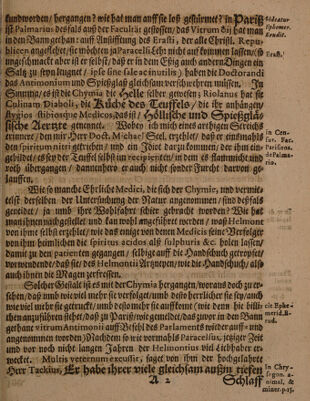 fundworden/ hergangen? wie hat man auff sie loß gestürmet? in Pariß
ist Palmarius deßfals auß der Facultät gestossen/ das Vitrum ôij hat man
in den Bann gethan: auff Anstifftung des Erasti, der alle Christl. Repu-
blicen angeflehet/ sie möchten ja Paracelsi Lehr nicht auf kommen lassen/ (so
ungeschmackt aber ist er selbst/ daß er in dem Essig auch andern Dingen ein
Saltz zu seyn leugnet/ ipse sine sale ac inutilis) haben die Doctorandi
das Antimonium und Spießglaß gleichsam verschweren müssen. In
Summa/ es ist die Chymie die Helle selber gewesen/ Riolanus hat sie
Culinam Diaboli, die Küche des Teuffels/ die ihr anhängen/
stygios stibiosque Medicos, das ist/ Höllische und Spießglä-
sische Aertzte genennet. Wobey ich mich eines artigen Streichs
erinnert/ den mir Herr Doct. Michael Seel. erzehlet/ daß er einsmahls
den spiritum nitri getrieben/ und ein Idiot darzu kommen/ der ihm ein-
gebildet/ es sey der Teuffel selbst im recipienten/ in dem es flammicht und
roth übergangen/ dannenhero er auch nicht sonder Furcht darvon ge-
lauffen.
Wie so manche Ehrliche Medici, die sich der Chymie, und vermit-
telst derselben der Untersuchung der Natur angenommen/ sind deßfals
geneidet/ ja umb ihre Wohlfahrt schier gebracht worden? Wie hat
man ihnen nachgestellet und das wohl angeführet werden/ was Helmont
von ihme selbst erzehlet/ wie daß einige von denen Medicis seine Verfolger
von ihm heimlichen die spiritus acidos als sulphuris &c. holen lassen/
damit zu den patienten gangen/ selbige auff die Handschuch getropfet/
vorwendende/ daß sie des Helmontii Artzneyen/ wie die Handschuh/ also
auch ihnen die Magen zerfressen.
Solcher Gestalt ist es mit der Chymia hergangen/ woraus doch zu er-
sehen/ daß umb wie viel mehr sie verfolget/ umb desto herrlicher sie sey/ und umb
wie viel mehr sie gedruckt/ umb desto mehr sie auffkome/
gethane vitrum Antimonii auff Befehl des Parlaments wieder auff-
und angenommen worden/
und noch nicht vor langen Jahren der Helmontius viel Liebhaber er-
wecket. Multis veternum excussit, saget von ihm der hochgelahrte
Herr Tackius, Er habe ihrer viele gleichsam außm tieffen
A 2 Schlaff
Videatur
Ephemer.
Erudit.
Erast.
in Cen-
sur. Fac.
Parisiens.
de Palma-
rio.
in Chry-
sogon. a-
nimal. &
miner. p.15.